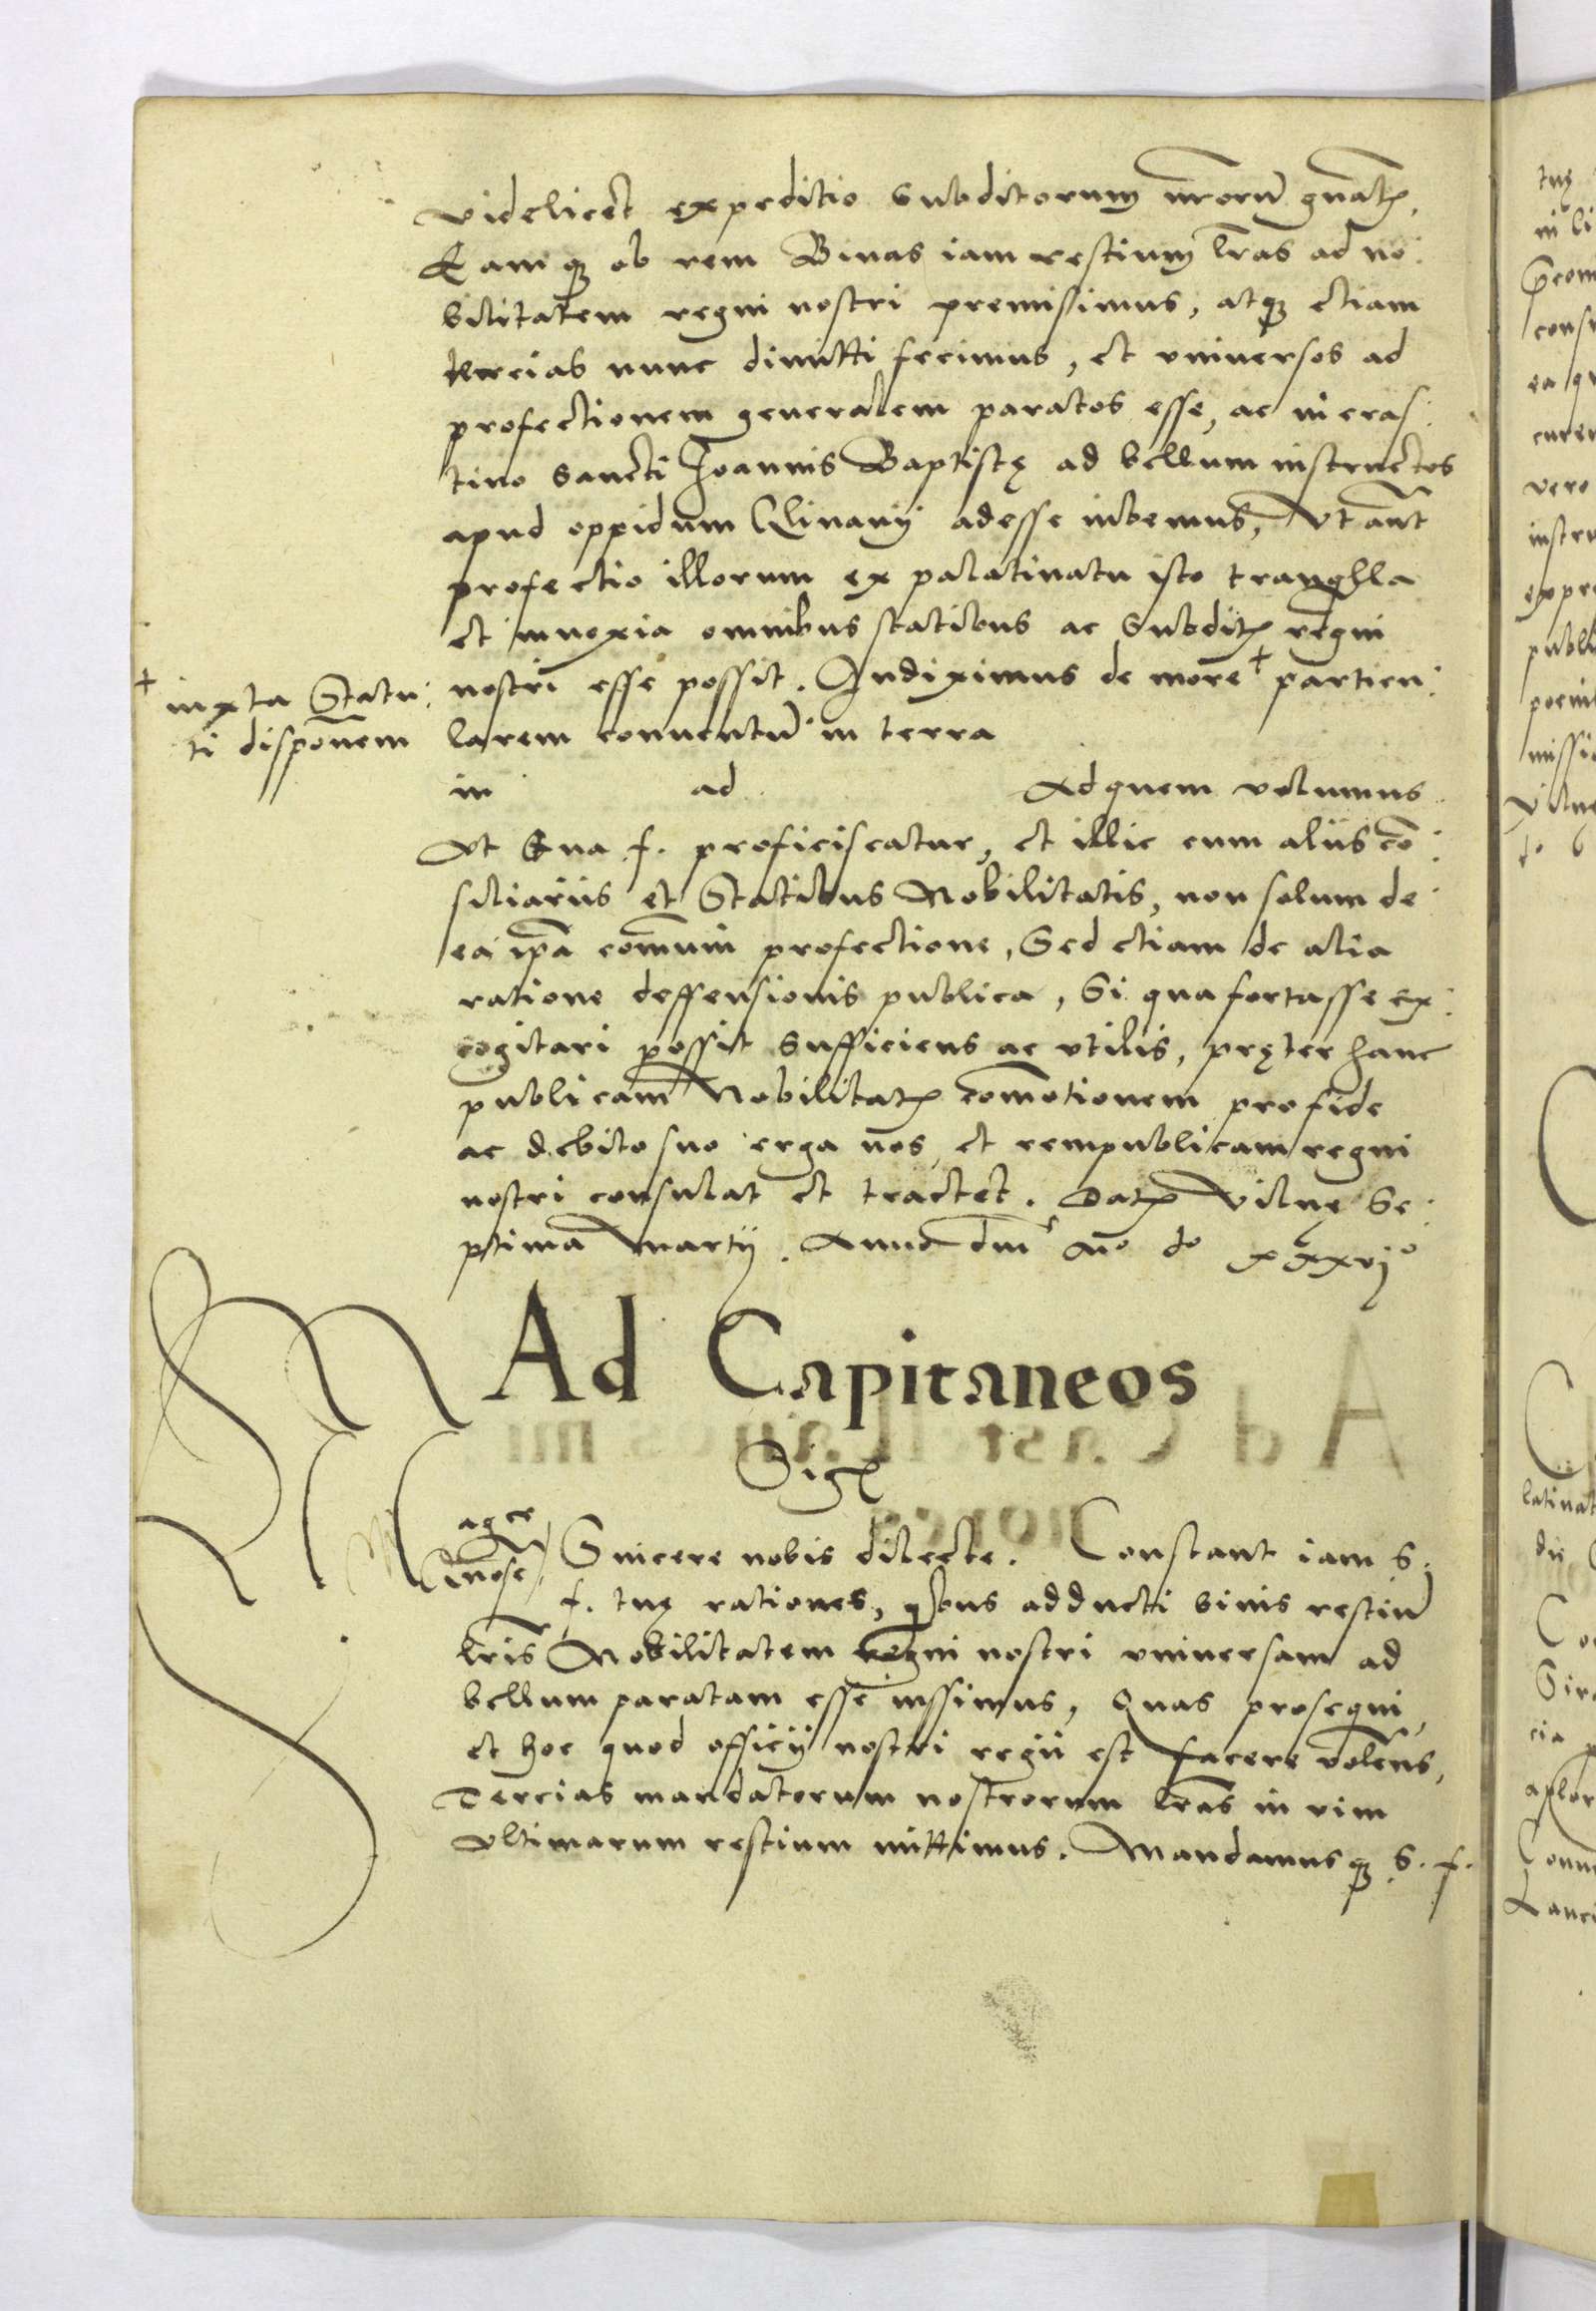 videlicet expeditio subditorum nrorũ gnalis.
Eamq ob rem Binas iam restium lras ad no:
bilitatem regni nostri premisimus, atq etiam
tercias nunc dimitti fecimus, et vniuersos ad
profectionem generalem paratos esse, ac in cras:
tino sancti Joannis Baptistę ad bellum instructos
apud oppidum Glinany adesse iubemus, Vt aut
profectio illorum ex palatinatu isto tranqlla
et innoxia omnibus statibus ac subditis regni
nostri esse possit. Indiximus de more + particu:
+ iuxta Statu:
ti disponem
larem conuentũ in terra
in ad Ad quem volumus
Vt Sua f. proficiscatur, et illic cum aliis cõ:
siliariis et Statibus Nobilitatis, non solum de
ea ipa comuni profectione, Sed etiam de alia
ratione deffensionis publica, Si qua fortasse ex:
cogitari possit sufficiens ac vtilis, pręter hanc
publicam Nobilitatis comotionem pro fide
ac debito suo erga nos, et rempublicam regni
nostri consulat et tractet. Datum Vilnę Se:
ptima Martij. Anno dni Mo do xxxvijo
Ad Capitaneos
Sigs
Magce
Gnose
Sincere nobis dilecte. Constant iam S.
f. tuę rationes, qbus adducti binis restiũ
lris Nobilitatem regni nostri vniuersam ad
bellum paratam esse iussimus, Quas prosequi,
et hoc quod officij nostri regii est facere volens,
Tercias mandatorum nostrorum lras in vim
vltimarum restium mittimus. Mandamusq S. f.